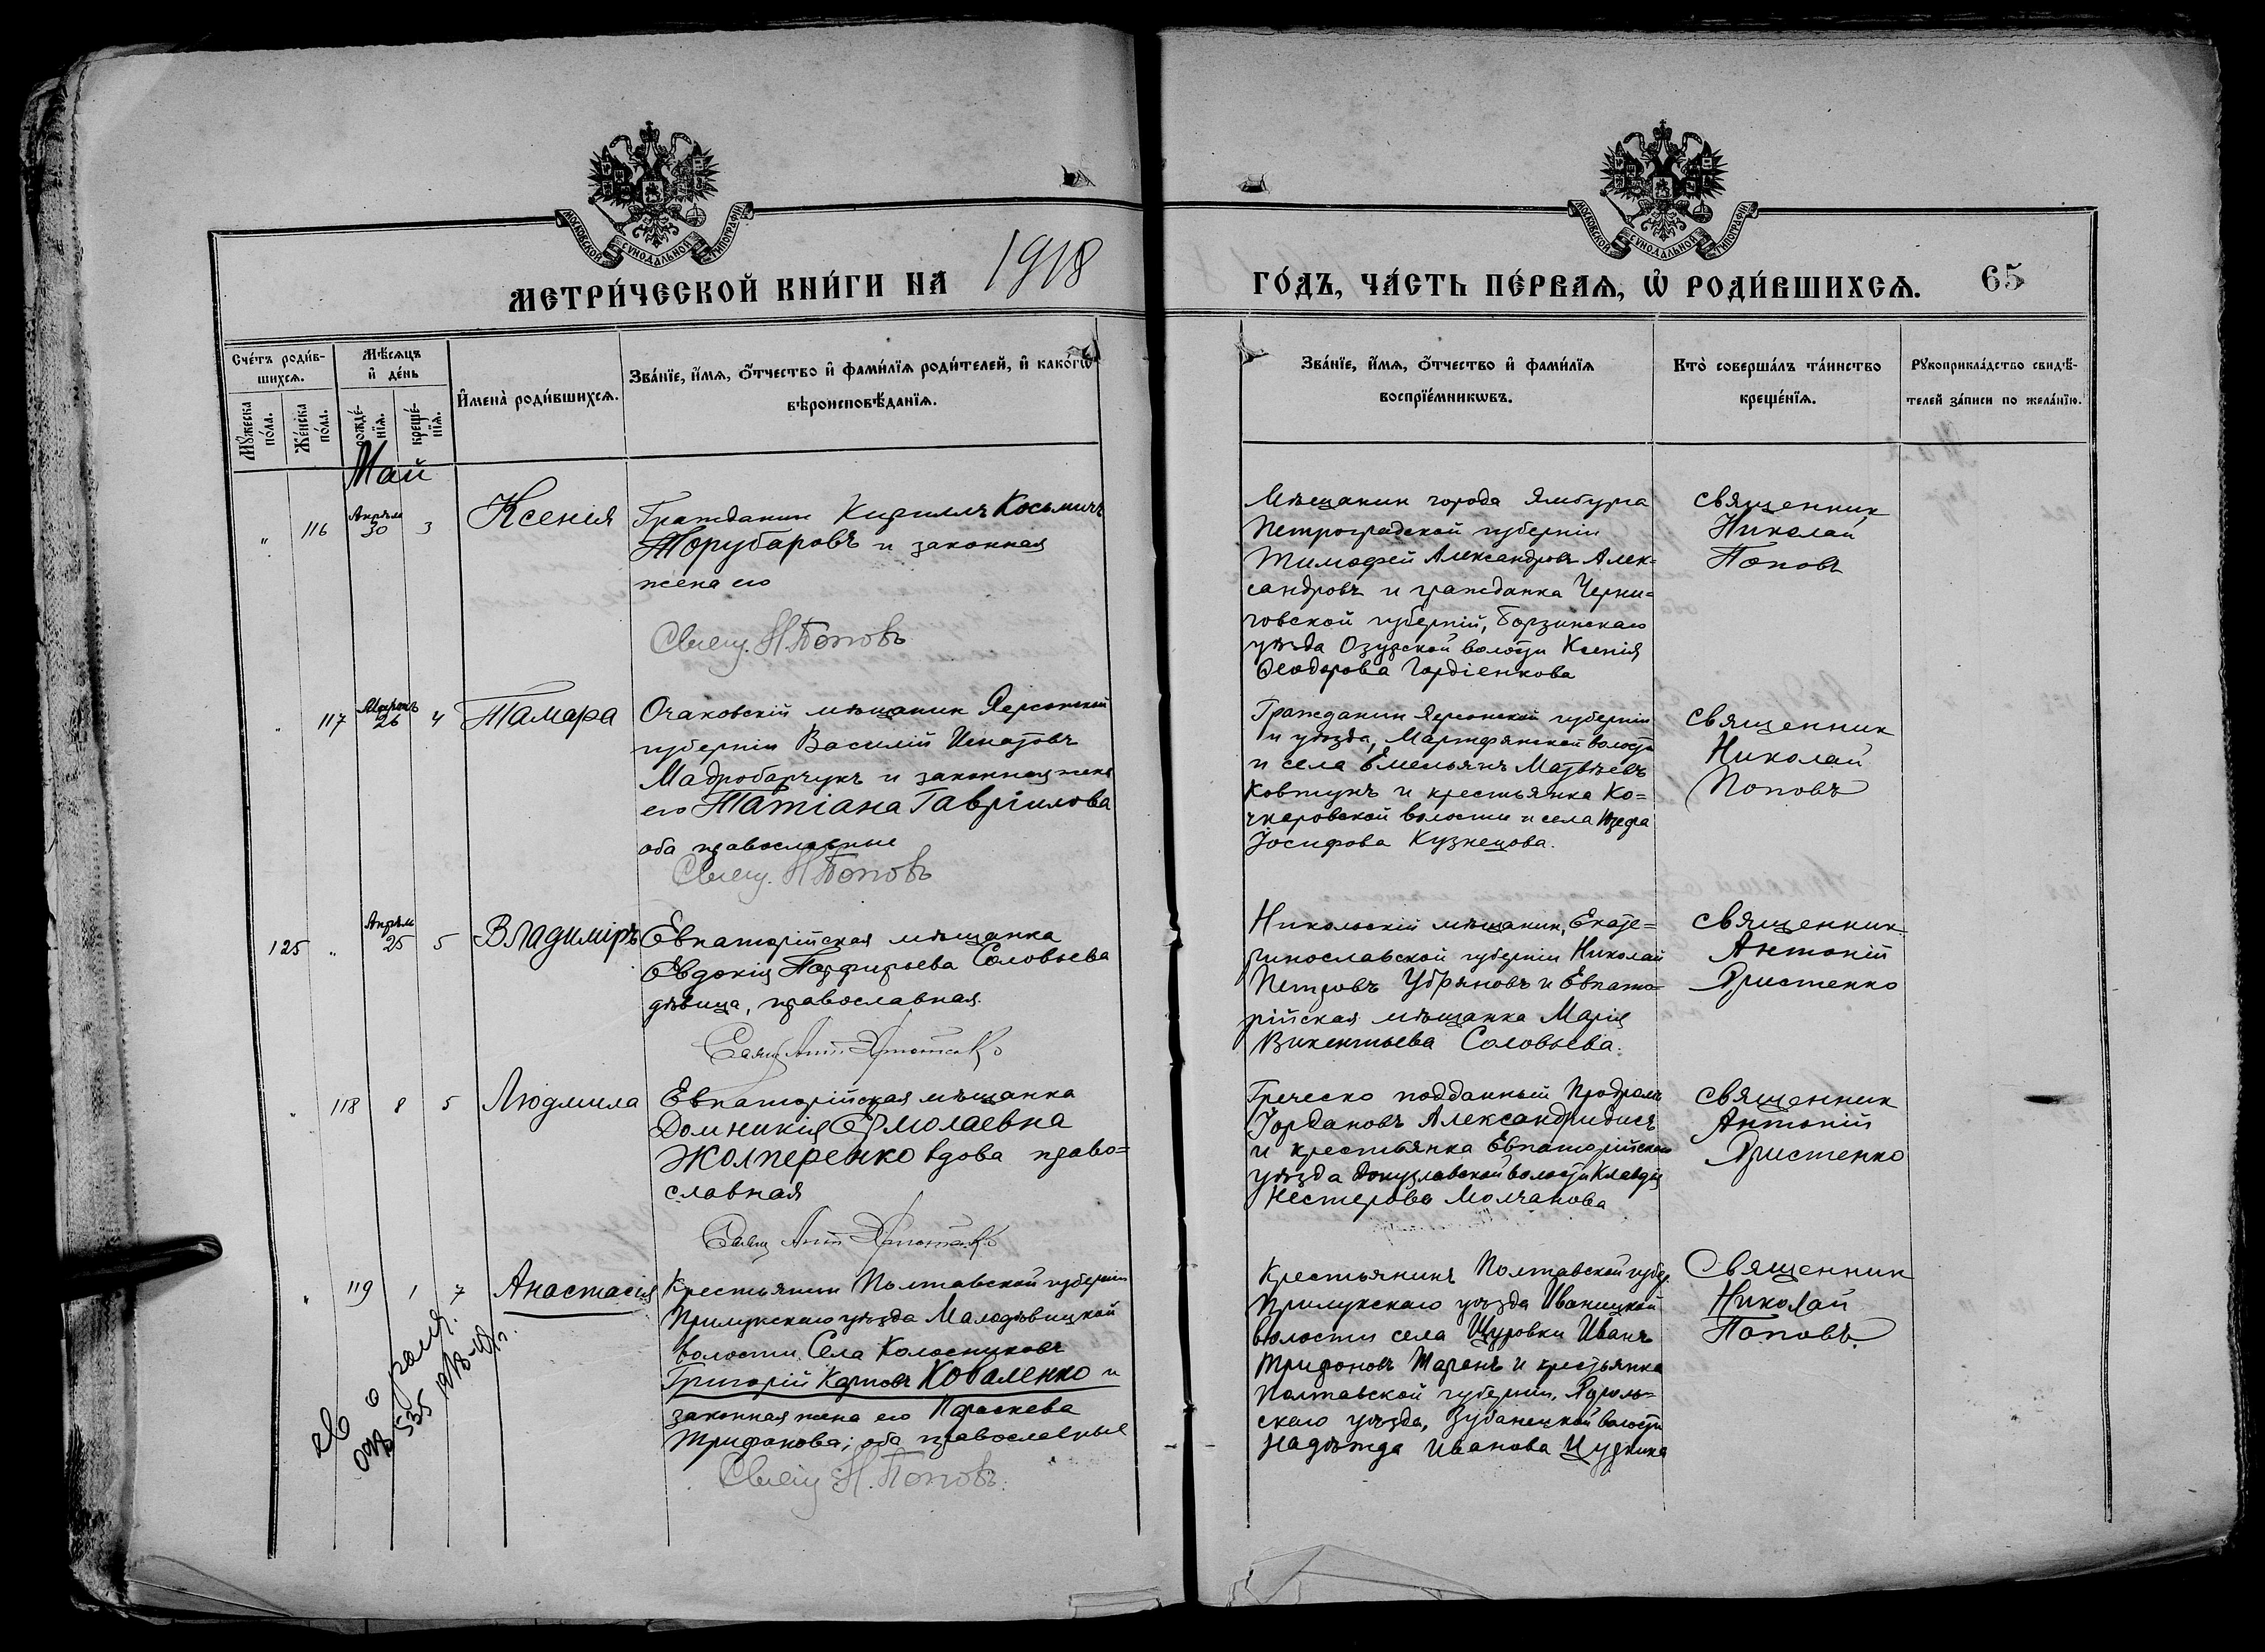 МОСКОВСКОЙ СУНОДАЛЬНОЙ ТИПОГРАФІИ
МОСКОВСКОЙ СУНОДАЛЬНОЙ ТИПОГРАФІИ
МЕТРИ́ЧЕСКОЙ КНИ́ГИ НА 1918
ГО́ДЪ, ЧА́СТЬ ПЕ́РВАѦ, Ѡ҆ РОДИ́ВШИХСѦ. 65
Сче́тъ роди́в-
шихсѧ.
Мѣ́сѧцъ
и҆ де́нь
И҆мена̀ роди́вшихсѧ.
Зва́нїе, и҆́мѧ, ѻ҆́тчество и҆ фами́лїѧ роди́телей, и҆ како́гѡ
вѣроисповѣ́данїѧ.
Мꙋ́жеска
по́ла.
Же́нска
по́ла.
рожде́-
нїѧ.
креще́-
нїѧ.
Зва́нїе, и҆́мѧ, ѻ҆́тчество и҆ фами́лїѧ
воспрїе́мникѡвъ.
Кто̀ соверша́лъ та́инство
креще́нїѧ.
Рꙋкоприкла́дство свидѣ́-
телей за́писи по жела́нїю.
Май
" 116 Апрѣля 30 3 Ксенія
Гражданинъ Кириллъ Косьмичъ
Торубаровъ и законная
жена его
Свящ. Н. Поповъ
Мѣщанин города Ямбурга
Петроградской губерніи
Тимофей Александровъ Алек=
сандровъ и гражданка Черни=
говской губерній, Борзинскаго
уѣзда Озурской волости Ксенія
Феодорова Гордіенкова
священник
Николай
Поповъ
" 117 Апрѣль 26 4 Тамара
Очаковскій мѣщанин Херсонской
губерніи Василій Игнатовъ
Мадробарчукъ и законная жена
его Татіана Гавріилова
оба православные
Свящ. Н. Поповъ
Гражданин Херсонской губерніи
и уѣзда, волости
и села Емельянъ Матвѣевъ
Ковтунъ и крестьянка Ко=
волости и села
Іосифова Кузнецова.
священник
Николай
Поповъ
125 " Апрѣля 25 5 Владиміръ
Евпаторійская мѣщанка
Евдокія Порфирьева Соловьева
дѣвица, православная.
Свящ. Ант. Христенко
Никольскій мѣщанин, Екате=
ринославской губерніи Николай
Петровъ Убряновъ и Евпато=
рійская мѣщанка Марія
Викентьева Соловьева.
священник
Антоній
Христенко
" 118 8 5 Людмила
Евпаторійская мѣщанка
Домникія Ермолаевна
Жолперенко вдова право=
славная
Свящ. Ант. Христенко
Греческо подданный Продромъ
Іордановъ Александридисъ
и крестьянка Евпаторійскаго
уѣзда Донузлавской волости Клавдія
Нестерова Молчанова
священник
Антоній
Христенко
" 119 1 7 Анастасія
Крестьянин Полтавской губерніи
Прилукскаго уѣзда Малодѣвицкой
волости, Села Колесниковъ
Григорій Карповъ Коваленко и
законная жена его Параскева
Трифонова; оба православные
Свящ. Н. Поповъ.
Крестьянинъ Полтавской губер.
Прилукскаго уѣзда Иваницкой
волости села Щуровки Иванъ
Трифоновъ Таранъ и крестьянка
Полтавской губерніи, Хороль=
скаго уѣзда, волости
Надѣжда Иванова
Священник
Николай
Поповъ.
535